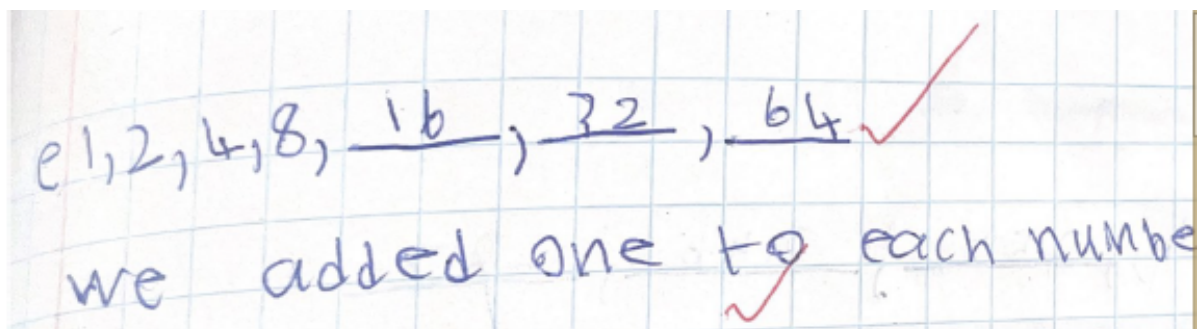 e 1, 2, 4, 8, 16, 32, 64
we added one to each numbe